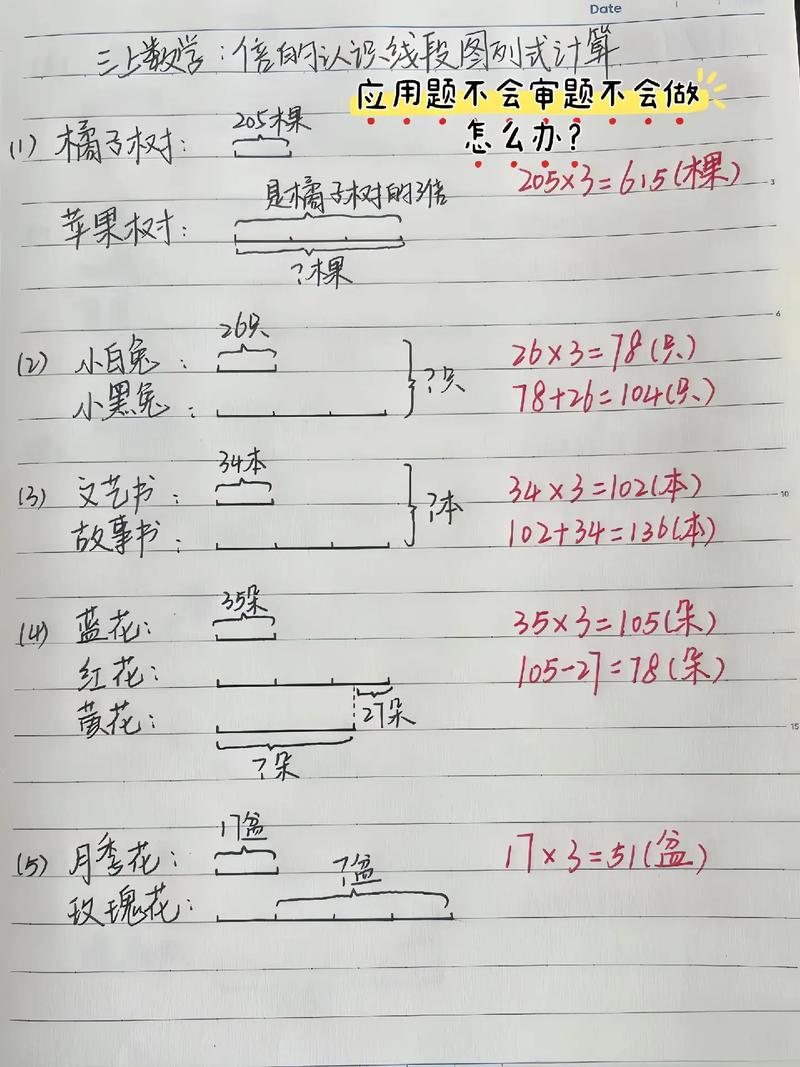 Date
三上数学：倍的认识线段图列式计算
应用题不会审题不会做
怎么办?
205棵
(1) 橘子树：
205×3=615(棵)
3
是橘子树的3倍
苹果树：
?棵
6
26只
(2) 小白兔：
26×3=78(只)
?只
小黑兔：
78+26=104(只)
34本
(3) 文艺书：
34×3=102(本)
10
?本
故事书：
102+34=136(本)
35朵
(4) 蓝花：
35×3=105(朵)
红花：
105-27=78(朵)
黄花：
27朵
15
?朵
17盆
(5) 月季花：
17×3=51(盆)
?盆
玫瑰花：